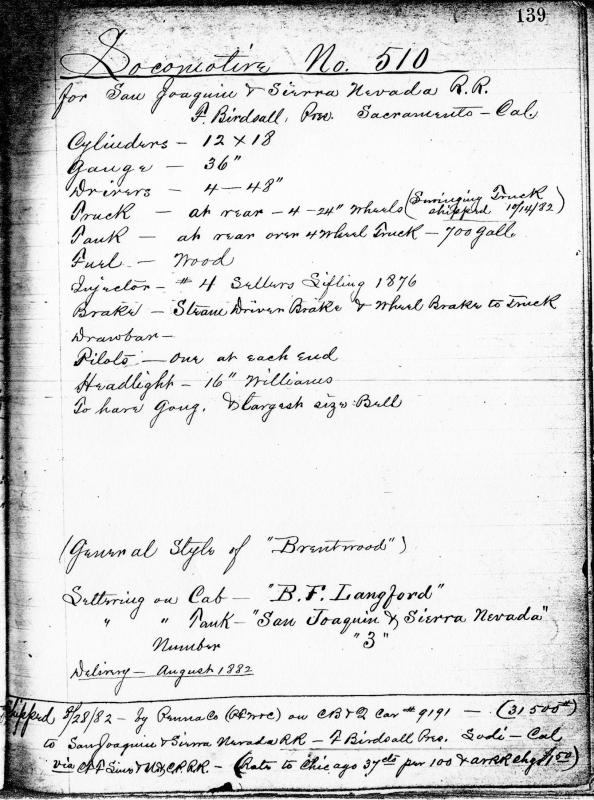 139
Locomotive No. 510
for San Joaquin & Sierra Nevada R.R.
F. Birdsall, Pres. Sacramento - Cal.
Cylinders - 12 x 18
Gauge - 36"
Drivers - 4 - 48"
Truck - at rear - 4 - 24" Wheels (Swinging Truck shipped 10/14/82)
Tank - at rear over 4 Wheel Truck - 700 gall.
Fuel - Wood
Injector - #4 Sellers Lifting 1876
Brake - Steam Driver Brake & Wheel Brake to Truck
Drawbar -
Pilots - one at each end
Headlight - 16" Williams
To have Gong, & largest size Bell
(General Style of "Brentwood")
Lettering on Cab - "B.F. Langford"
" " Tank - "San Joaquin & Sierra Nevada"
Number "3"
Delivery - August 1882
Shipped 8/28/82 - by Penna Co (P.Ft.W&C) on CB&Q Car #9191 - (31500#)
to San Joaquin & Sierra Nevada RR - F Birdsall Pres. Lodi - Cal
via & C.P.R.R. - (Rate to Chicago 37cts per 100 & chgs 1.50)